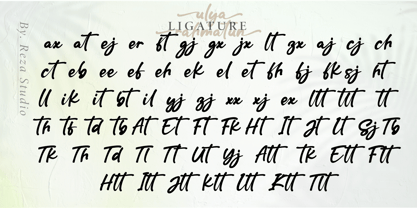 ulya
LIGATURE
rahmatun
By. Reza Studio
ax at ej er ft gj gx jx lt gx aj cj ch
ct eb ee ef eh ek el et fh fj fk sj ht
ll ik it bt il yj gj xx xj ex ltt ttt tt
th ts td tb At Et Ft Fk Ht It Jt Lt Sj Tb
Tk Th Td Tl Tt Ut Yj Att tk Ett Ftt
Htt Itt Jtt Ktt Utt Ktt Ttt